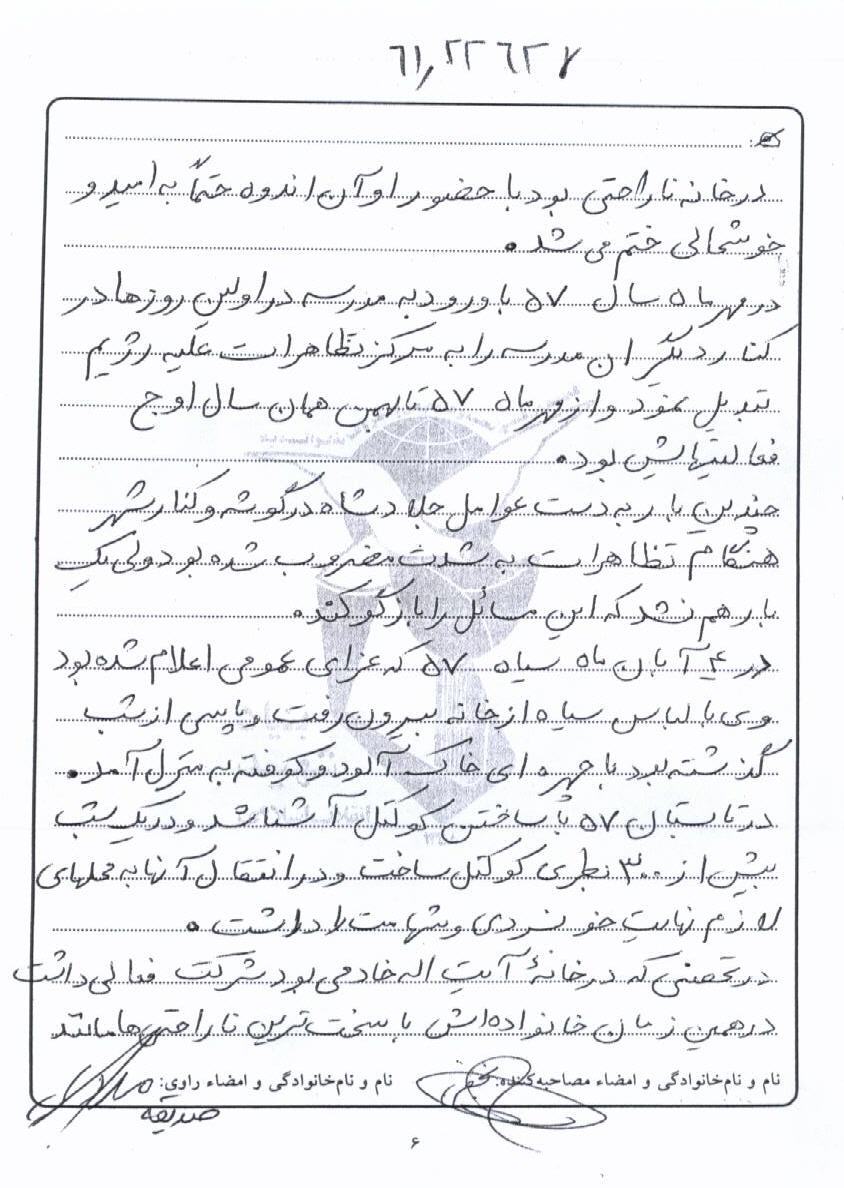 ۶۱٫۲۲۶۲۷
در خانه ناراحتی بود با حضور او آن اندوه حتماً به امید و
خوشحالی ختم می شد.
در مهرماه سال ۵۷ با ورود به مدرسه در اولین روزها در
کنار دیگران مدرسه را به مرکز تظاهرات علیه رژیم
تبدیل نمود و از مهرماه ۵۷ تا بهمن همان سال اوج
فعالیتهایش بود.
چندین بار به دست عوامل جلاد شاه در گوشه و کنار شهر
هنگام تظاهرات به شدت مضروب شده بود ولی یک
بار هم نشد که این مسائل را بازگو کند.
در ۴ آبان ماه سیاه ۵۷ که عزای عمومی اعلام شده بود
وی با لباس سیاه از خانه بیرون رفت و پاسی از شب
گذشته بود با چهره ای خاک آلود و کوفته به منزل آمد.
در تابستان ۵۷ با ساختن کوکتل آشنا شد و در یک شب
بیش از ۳۰۰ بطری کوکتل ساخت و در انتقال آنها به محلهای
لازم نهایت خونسردی و شهامت را داشت.
در تحصنی که در خانهٔ آیت اله خادمی بود شرکت فعالی داشت
در همین زمان خانواده اش با سخت ترین ناراحتی ها مانند
نام و نام خانوادگی و امضاء مصاحبه کننده: نام و نام خانوادگی و امضاء راوی:
صدیقه
۶